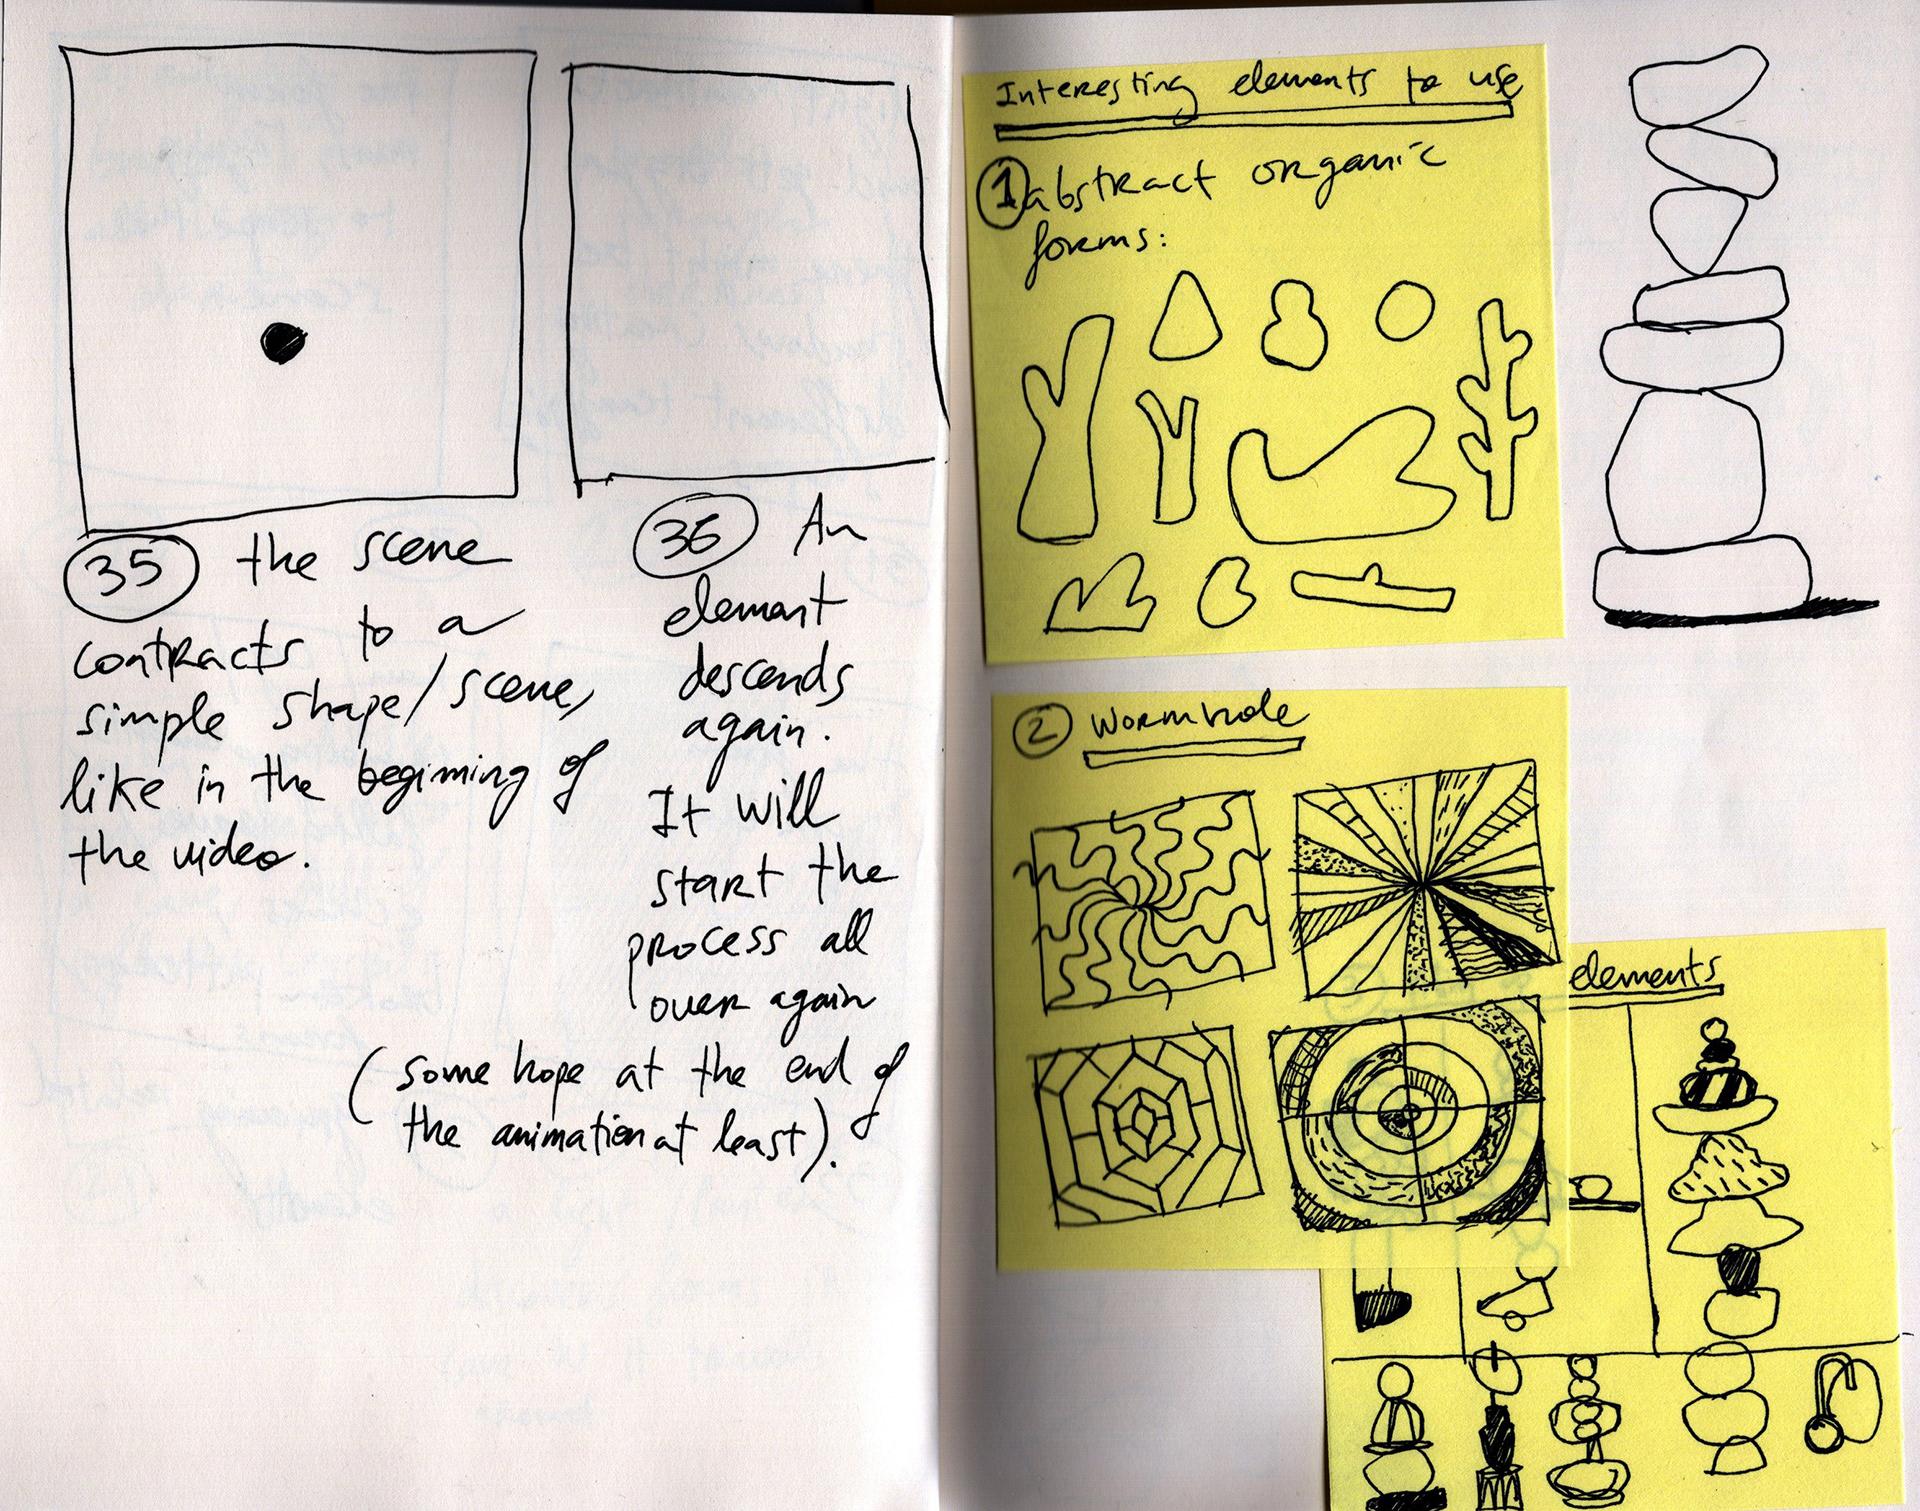 35 the scene
contracts to a
simple shape/scene,
like in the beginning of
the video.
36 An
element
descends
again.
It will
start the
process all
over again
(some hope at the end of
the animation at least).
Interesting elements to use
1 abstract organic
forms:
2 Wormhole
elements